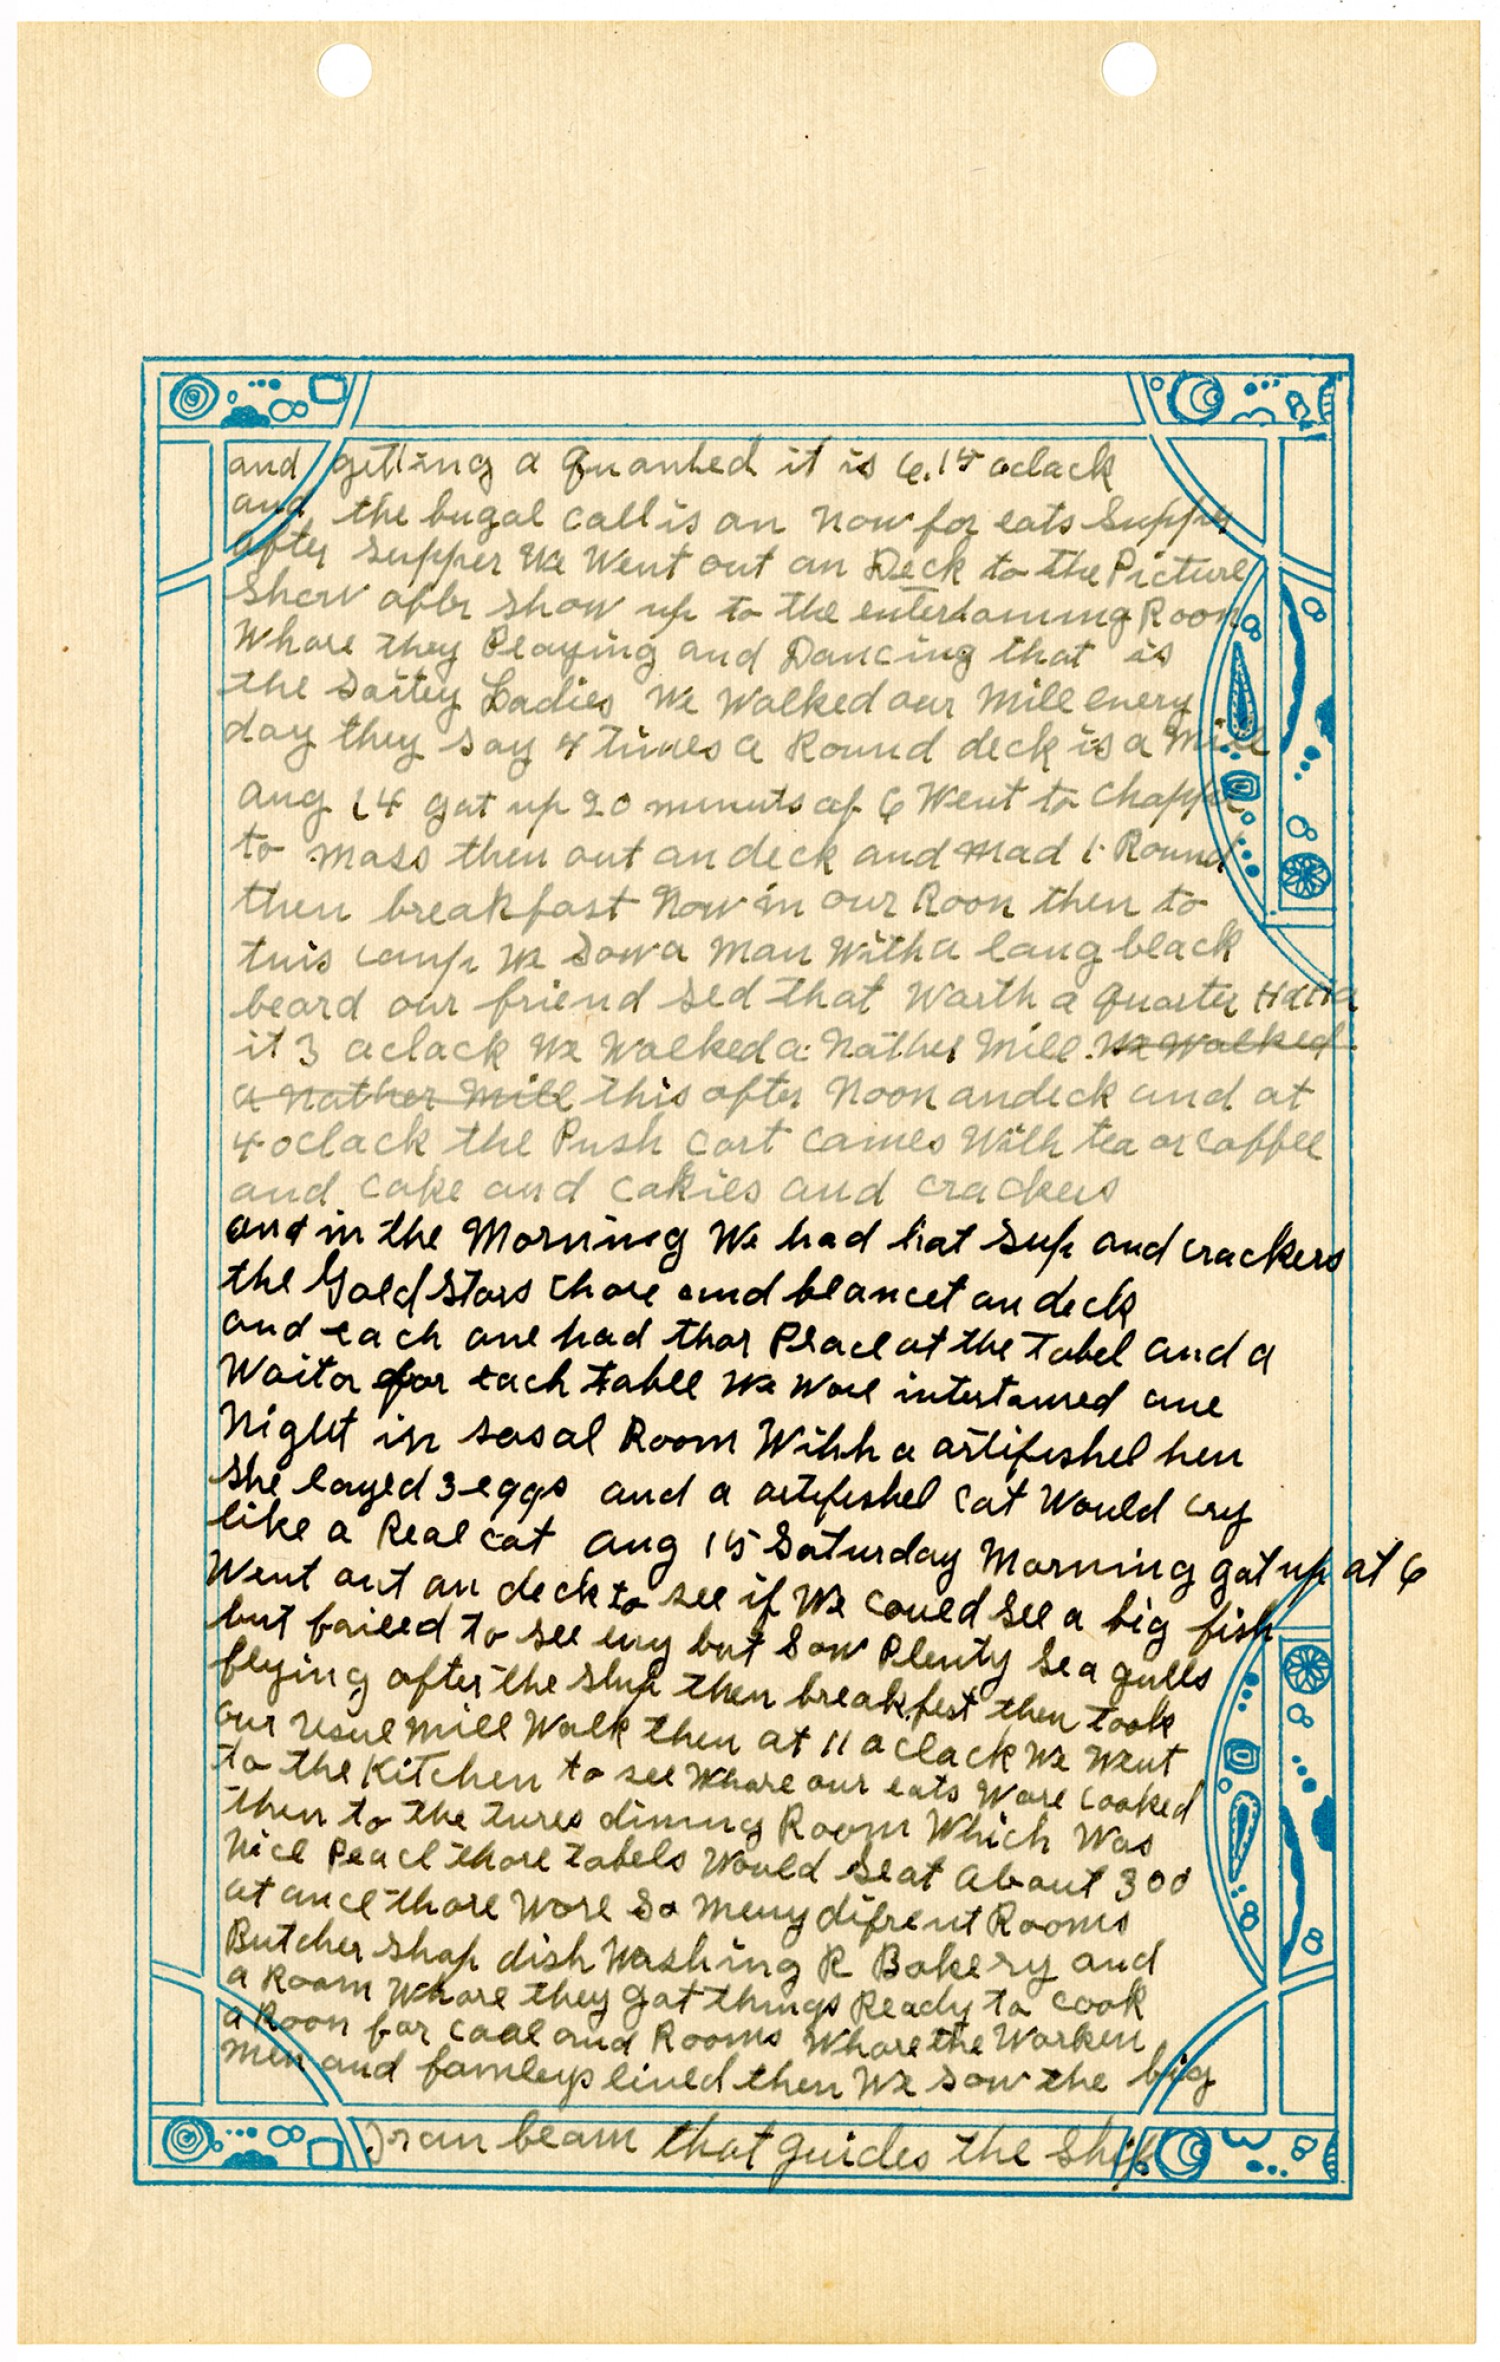 and getting a quanted it is 6.15 oclack
and the bugal call is an now for eats Supper
after supper We Went out an Deck to the Picture
Show after show up to the entertaning Room
Whare they Playing and Dancing that is
the Ladies We Walked our Mill every
day they say 4 times a Round deck is a Mill
Aug 14 gat up 20 minuts af 6 Went to Chapple
to mass then out an deck and mad 1 Round
then breakfast Now in our Room then to
We Sow a Man With a lang black
beard our friend sed that Warth a quarter
it 3 aclack We Walked a Nather Mill. We Walked
a nather Mill this after Noon an deck and at
4 oclack the Push Cart Cames With tea or Coffee
and Cake and Cakies and Crackers
and in the Morning We had hat Sup and crackers
the Gold Stars Chare and blancet an deck
and each one had thar Place at the Tabel and a
Waitor for each tabel We Ware intertained one
Night in sosal Room With a artifishel hen
She layed 3 eggs and a artifishel Cat Would Cry
like a Real Cat Aug 15 Saturday Morning gat up at 6
Went out an deck to see if We Could See a big fish
but failed to see eny but Sow Plenty Sea gulls
flying after the Ship then breakfest then took
our Usuel Mill Walk then at 11 aclack We Went
to the Kitchen to see Whare our eats Ware Cooked
then to the tures dining Room Which Was
Nice Place thare tabels Would Seat About 300
at ance thare Ware So Meny difrent Rooms
Butcher Shap dish Washing R Bakery and
a Room Whare they gat things Ready to Cook
a Room for Coal and Rooms Whare the Worken
Men and fameleys lived then We Sow the big
Iran beam that guides the Ship